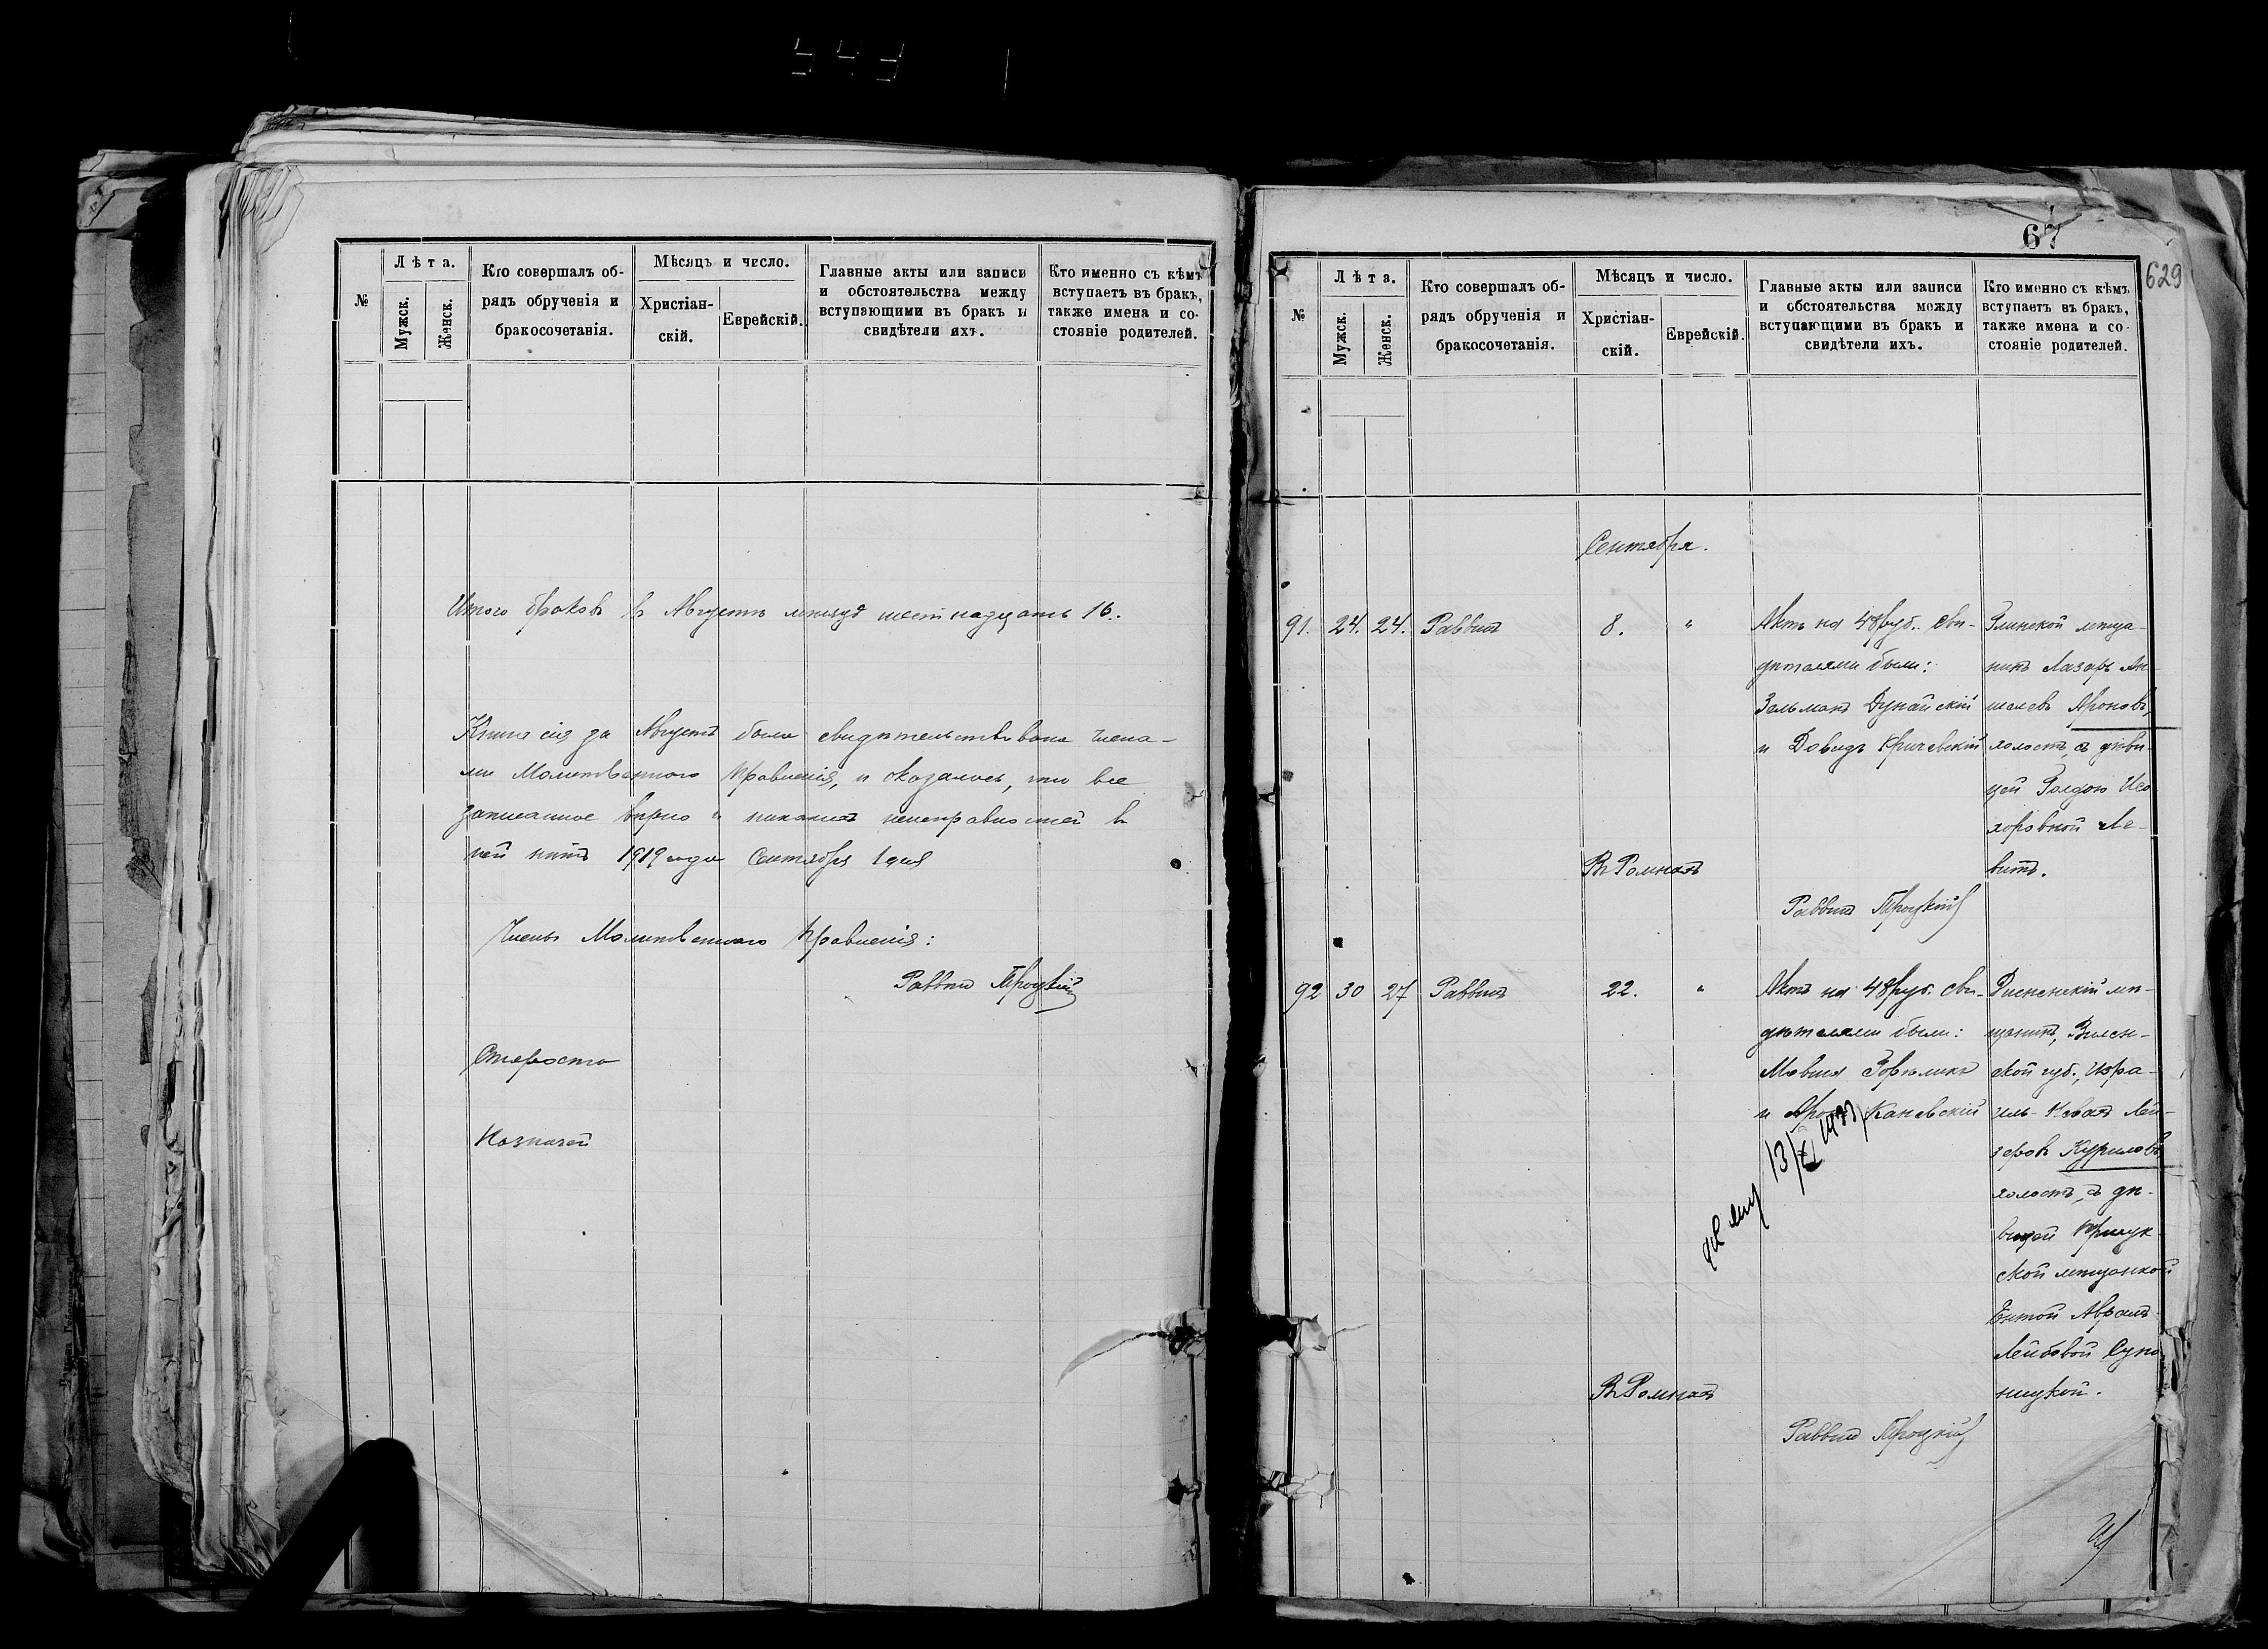 №
Лѣта.
Мужск.
Женск.
Кто совершалъ об-
рядъ обрученія и
бракосочетанія.
Мѣсяцъ и число.
Христіан-
скій.
Еврейскій.
Главные акты или записи
и обстоятельства между
вступающими въ бракъ и
свидѣтели ихъ.
Кто именно съ кѣмъ
вступаетъ въ бракъ,
также имена и со-
стояніе родителей.
Итого браковъ въ Августѣ мѣсяцѣ шестнадцать 16.
Книга сія за Августъ была свидѣтельствована члена-
ми Молитвеннаго Правленія, и оказалось, что все
записанное вѣрно и никакихъ неисправностей въ
ней нѣтъ 1919 года Сентября 1 дня
Члены Молитвеннаго Правленія:
Раввинъ Троцкій
Староста
Казначей
67
629
№
Лѣта.
Мужск.
Женск.
Кто совершалъ об-
рядъ обрученія и
бракосочетанія.
Мѣсяцъ и число.
Христіан-
скій.
Еврейскій.
Главные акты или записи
и обстоятельства между
вступающими въ бракъ и
свидѣтели ихъ.
Кто именно съ кѣмъ
вступаетъ въ бракъ,
также имена и со-
стояніе родителей.
Сентября.
91. 24. 24. Раввинъ 8. "
Актъ на 48 руб. Сви-
дѣтелями были:
Зальманъ Дунайскій
и Довидъ Кричевскій
Глинской мѣща-
нинъ Лазарь Ан-
шелевъ Ароновъ,
холостъ, съ дѣви-
цей Голдою Исо-
хоровной Ле-
витъ.
Въ Ромнахъ
Раввинъ Троцкій
92 30 27 Раввинъ 22. "
Актъ на 48 руб. Сви-
дѣтелями были:
Мовша Горѣликъ
и Аронъ Каневскій
Дисненскій мѣ-
щанинъ, Вилен-
ской губ., Изра-
иль- Лей-
зеровъ Куриловъ,
холостъ, съ дѣ-
вицей
ской мѣщанкой
Ентой Абрамъ-
Лейбовой Супо-
ницкой.
13/XI 1933
Въ Ромнахъ
Раввинъ Троцкій